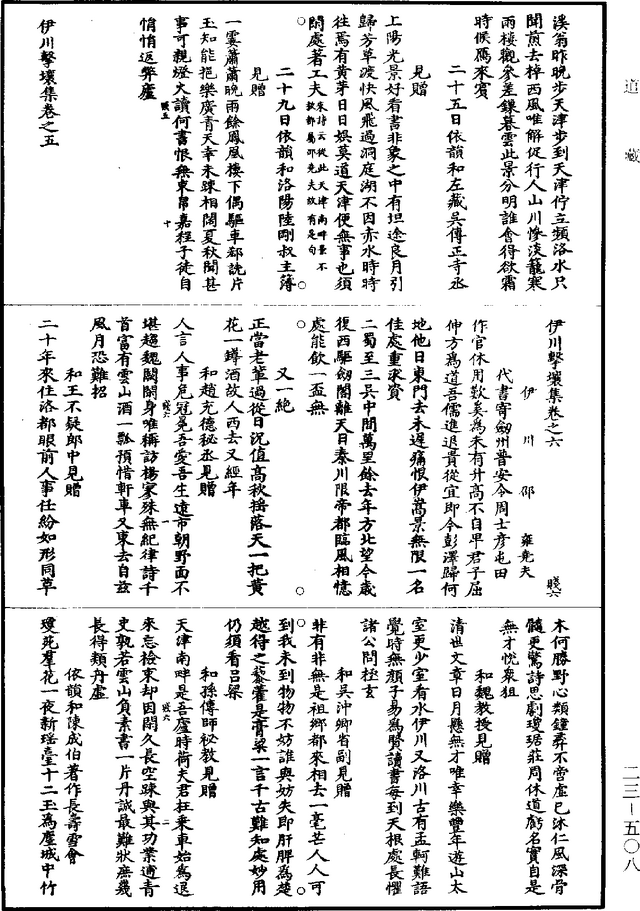 道藏
溪翁昨晚步天津步到天津佇立頻洛水只
聞煎去棹西風唯解促行人山川慘淡籠寒
雨樓觀參差鏁暮雲此景分明誰會得欲霜
時候鴈來賓
二十五日依韻和左藏吳傳正寺丞
見贈
上陽光景好看書非象之中有坦途良月引
歸芳草渡快風飛過洞庭湖不因赤水時時
往焉有黄芽日日娱莫道天津便無事也須
閑處著工夫
二十九日依韻和洛陽陸剛叔主簿
見贈
一霎蕭蕭晚雨餘鳳風樓下偶驅車郄詵片
玉知能挹樂廣青天幸未踈相闊夏秋聞甚
事可親燈火讀何書恨無東帛嘉程子徒自
悄悄返弊廬
賤五
十
伊川擊壤集卷之五
伊川擊壤集卷之六
賤六
伊川邵雍堯夫
代書寄劒州普安令周士彦屯田
作官休用歎奚爲未有升高不自卑君子屈
伸方爲道吾儒進退貴從宜即今彭澤歸何
地他日東門去未遲痛恨伊嵩景無限一名
佳處重求資
二蜀至三吴中間萬里餘去年方北望今歲
復西驅劒閣離天日秦川限帝都臨風相憶
處能飲一盃無
又一絶
正當老輩過從日況值高秋摇落天一把黄
花一罇酒故人西去又經年
和趙充德秘丞見贈
人言人事危冠冕吾愛吾生遠市朝野面不
堪趨魏闕閑身唯稱訪楊寥殊無紀律詩千
首富有雲山酒一瓢預惜軒車又東去自兹
風月恐難招
賤六
一
和王不疑郎中見贈
二十年來住洛都眼前人事任紛如形同草
木何勝野心類鐘彝不啻虚已沐仁風深骨
髓更驚詩思劇瓊琚莊周休道虧名實自是
無才悅衆狙
和魏教授見贈
清世文章日月懸無才唯幸樂豐年遊山太
室更少室看水伊川又洛川古有孟軻難語
覺時無顏子易爲賢讀書每到天根處長懼
諸公問極玄
和吳沖卿省副見贈
非有非無是祖鄉都來相去一毫芒人人可
到我未到物物不妨誰與妨失即肝脾爲楚
越得之藜藿是膏粱一言千古難知處妙用
仍須看吕梁
和孫傳師祕教見贈
天津南畔是吾廬時荷夫君枉乘車始爲退
來忘檢束却因閑久長空踈與其功業逋青
史孰若雲山負素書一片丹誠最難狀庶幾
長得類丹虚
賤六
二
依韻和陳成伯著作長壽雪會
瓊苑羣花一夜新瑶臺十二玉爲塵城中竹
二三—五〇八